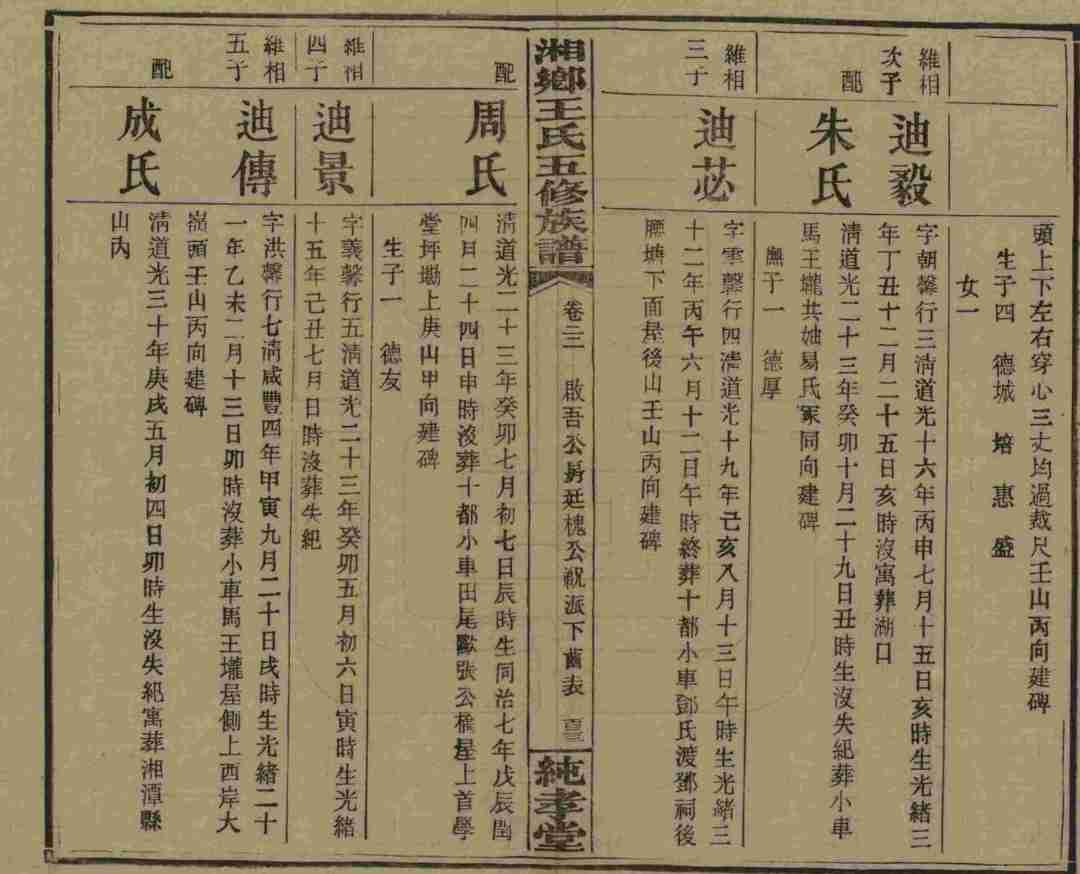 頭上下左右穿心三丈均過裁尺壬山丙向建碑
生子四　德城　培　惠　盛
女一
維相
次子
迪毅
字朝馨行三淸道光十六年丙申七月十五日亥時生光緒三
年丁丑十二月二十五日亥時沒寓葬湖口
配
朱氏
淸道光二十三年癸卯十月二十九日丑時生沒失紀葬小車
馬王壠共妣易氏冢同向建碑
撫子一　德厚
維相
三子
迪苾
字雲馨行四淸道光十九年己亥八月十三日午時生光緒三
十二年丙午六月十二日午時終葬十都小車鄧氏渡鄧祠後
腰塘下面屋後山壬山丙向建碑
湘鄉王氏五修族譜
卷三二　啟吾公房廷槐公祝派下齒表
純孝堂
配
周氏
淸道光二十三年癸卯七月初七日辰時生同治七年戊辰閏
四月二十四日申時沒葬十都小車田尾歐張公橋屋上首學
堂坪墈上庚山甲向建碑
生子一　德友
維相
四子
迪景
字義馨行五淸道光二十三年癸卯五月初六日寅時生光緒
十五年己丑七月日時沒葬失紀
維相
五子
迪傳
字洪馨行七淸咸豐四年甲寅九月二十日戌時生光緒二十
一年乙未二月十三日卯時沒葬小車馬王壠屋側上西岸大
嶺頭壬山丙向建碑
配
成氏
淸道光三十年庚戌五月初四日卯時生沒失紀寓葬湘潭縣
山內